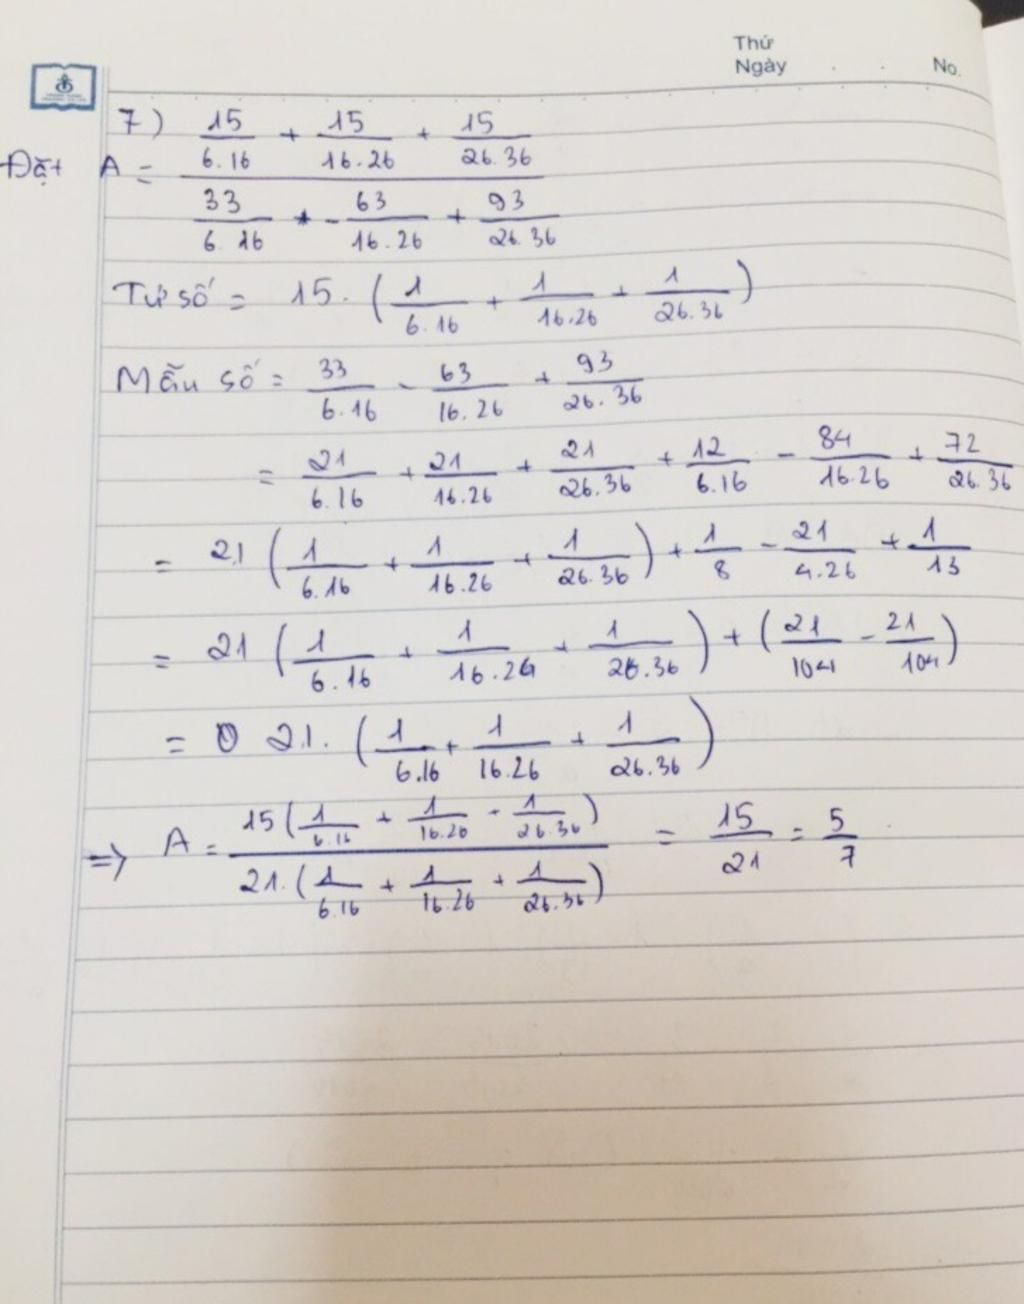 Thứ
Ngày . . No.
7) 15/6.16 + 15/16.26 + 15/26.36
Đặt A = ―――
33/6.16 - 63/16.26 + 93/26.36
Tử số = 15. (1/6.16 + 1/16.26 + 1/26.36)
Mẫu số = 33/6.16 - 63/16.26 + 93/26.36
= 21/6.16 + 21/16.26 + 21/26.36 + 12/6.16 - 84/16.26 + 72/26.36
= 21 (1/6.16 + 1/16.26 + 1/26.36) + 1/8 - 21/4.26 + 1/13
= 21 (1/6.16 + 1/16.26 + 1/26.36) + (21/104 - 21/104)
= 21. (1/6.16 + 1/16.26 + 1/26.36)
=> A = 15(1/6.16 + 1/16.26 + 1/26.36) / 21.(1/6.16 + 1/16.26 + 1/26.36) = 15/21 = 5/7